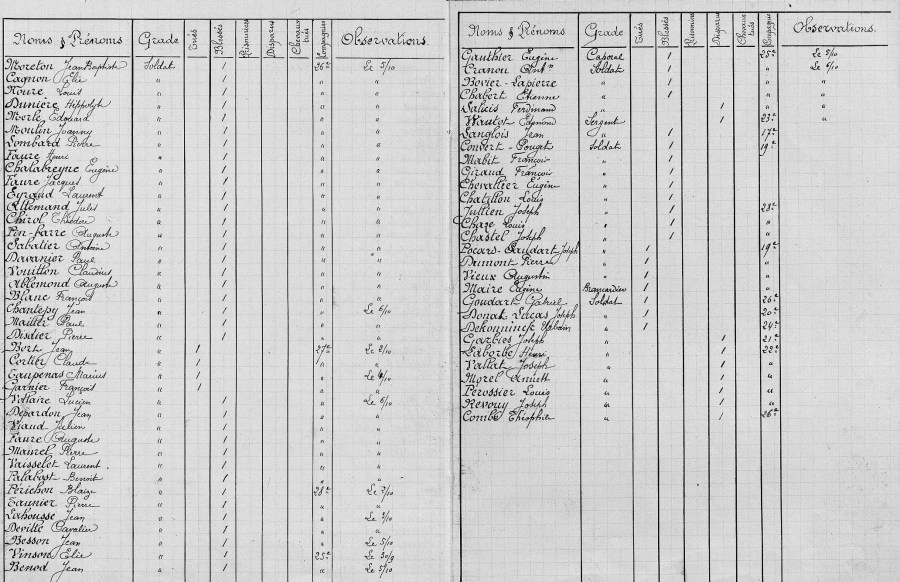 Noms & Prénoms Grade Tués Blessés Prisonniers Disparus Chevaux tués Compagnies Observations.
Moreton Jean Baptiste Soldat / 26e Le 5/10
Cagnon Elie " / " "
Noure Louis " / " "
Dunière Hippolyte " / " "
Merle Edouard " / " "
Moulin Joanny " / " "
Lombard Pierre " / " "
Faure Henri " / " "
Chalabreyne Eugène " / " "
Faure Jacques " / " "
Eyraud Laurent " / " "
Allemand Jules " / " "
Chirol Théodore " / " "
Pin-barre Auguste " / " "
Sabatier Antoine " / " "
Davanier Paul " / " "
Vouillon Claudius " / " "
Ablemond August " / " "
Blanc François " / " "
Chantepy Jean " / " Le 6/10
Maillet Paul " / " "
Disdier Pierre " / " "
Bert Jean " / 27e Le 2/10
Cortier Claude " / " "
Gaupenas Marius " / " Le 4/10
Garnier François " / " "
Voltaire Lucien " / " Le 6/10
Depardon Jean " / " "
Viaud Julien " / " "
Faure Auguste " / " "
Maurel Pierre " / " "
Vaisselet Laurent " / " "
Palabost Benoit " / " "
Périchon Blaize " / 28e Le 2/10
Taunier Pierre " / " "
Lahousse Jean " / " Le 2/10
Deville Cavalier " / " "
Besson Jean " / " Le 5/10
Vinson Elie " / 25e Le 30/9
Benod Jean " / " Le 5/10
Noms & Prénoms Grade Tués Blessés Prisonniers Disparus Chevaux tués Compagnie Observations.
Gauthier Eugène Caporal / 25e Le 5/10
Cranou Ant.n Soldat / " Le 6/10
Bovier-Lapierre " / " "
Chabert Etienne " / " "
Salicis Ferdinand " / " "
Wautot Edmond Sergent / 23e "
Langlois Jean " / 17e
Convert-Pouget Soldat / 19e
Mabit François " / "
Giraud François " / "
Chevallier Eugène " / "
Chatillon Louis " / "
Jullien Joseph " / 28e
Chaze Louis " / "
Chastel Joseph " / "
Pocars-Gaudart Joseph " / 19e
Dumont Pierre " / "
Vieux Augustin " / "
Maire Eugène Brancardier / "
Goudart Gabriel Soldat / 26e
Donat Lucas Joseph " / 20e
Dekonninck " / 24e
Garbies Joseph " / 21e
Laborbe Henri " / 22e
Vallat Joseph " / "
Morel " / "
Pérossier Louis " / "
Revouy Joseph " / "
Combe Théophile " / 26e